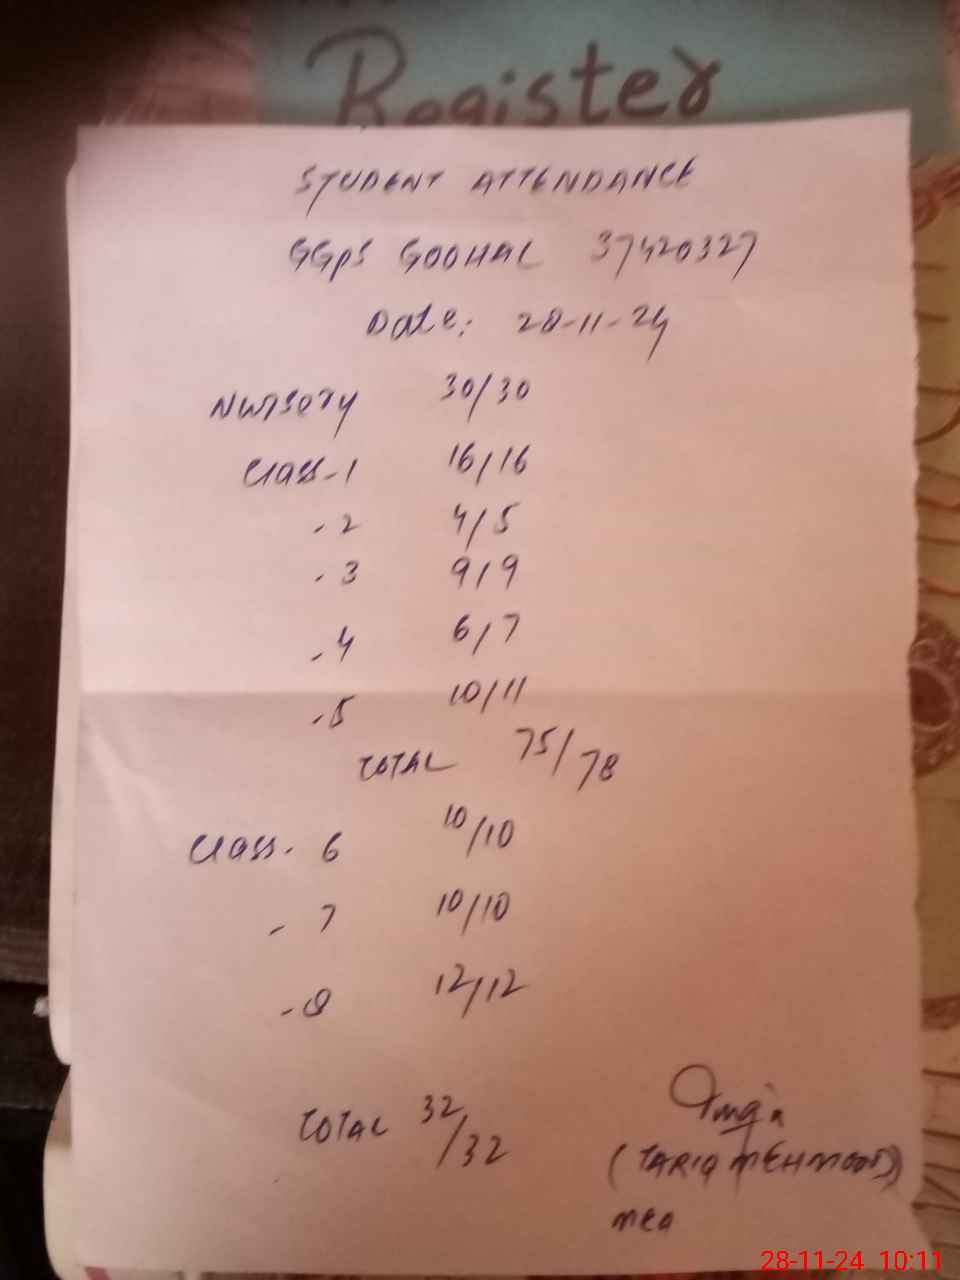 Register
STUDENT ATTENDANCE
GGPS GOOHAL 37420327
Date: 28-11-24
Nursery 30/30
Class-1 16/16
-2 4/5
-3 9/9
-4 6/7
-5 10/11
TOTAL 75/78
Class-6 10/10
-7 10/10
-8 12/12
TOTAL 32/32
(TARIQ MEHMOOD)
MEA
28-11-24 10:11